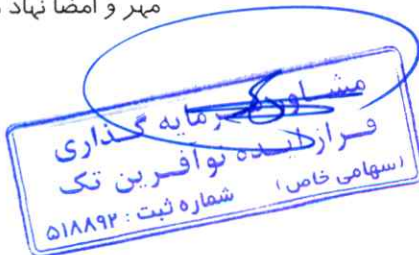 مهر و امضا نهاد
مشاور سرمایه گذاری
فراز ایده نو آفرین تک
(سهامی خاص) شماره ثبت : ۵۱۸۸۹۲